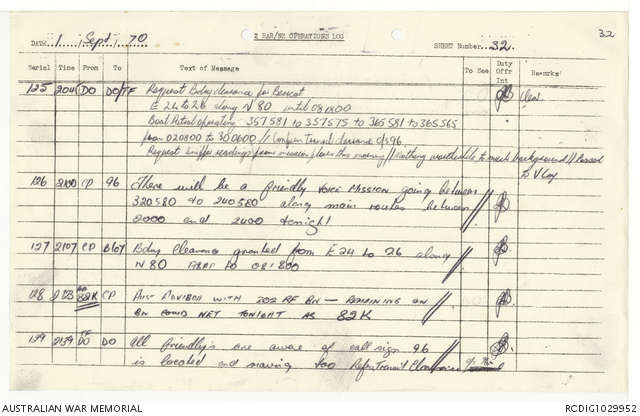 2 RAR/NZ OPERATIONS LOG
32
DATE 1 Sept 70
SHEET Number 32
Serial Time From To Text of Message To See Duty Offr Int Remarks
125 2041 DO DO/TF Request Bdry clearance for Bencat
E 24 to 26 along N 80 until 081800
Boat Patrol operating 357581 to 357575 to 365581 to 365565
from 020800 to 300600 // Confirm Transit clearance c/s 96
Request sniffer readings from mission flown this morning // Nothing worthwhile to mark background // Passed
to V Coy
126 2100 CP 96 There will be a friendly VOICE MISSION going between
320580 to 240580 along main routes between
2000 and 2400 tonight
127 2107 CP Bdry Clearance granted from E24 to 26 along
N 80 081800
128 82K CP with 202 RF BN — REMAINING ON
BN NET TONIGHT AS 82K
129 2139 DO DO All friendly's are aware of call sign 96
is located and moving too Refer Transit Clearance
AUSTRALIAN WAR MEMORIAL
RCDIG1029952